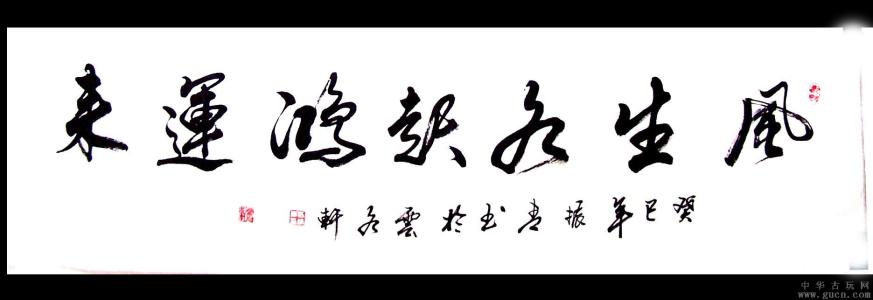 風生水起鴻運来
癸巳年振青书於雲水軒
中华古玩网
www.gucn.com